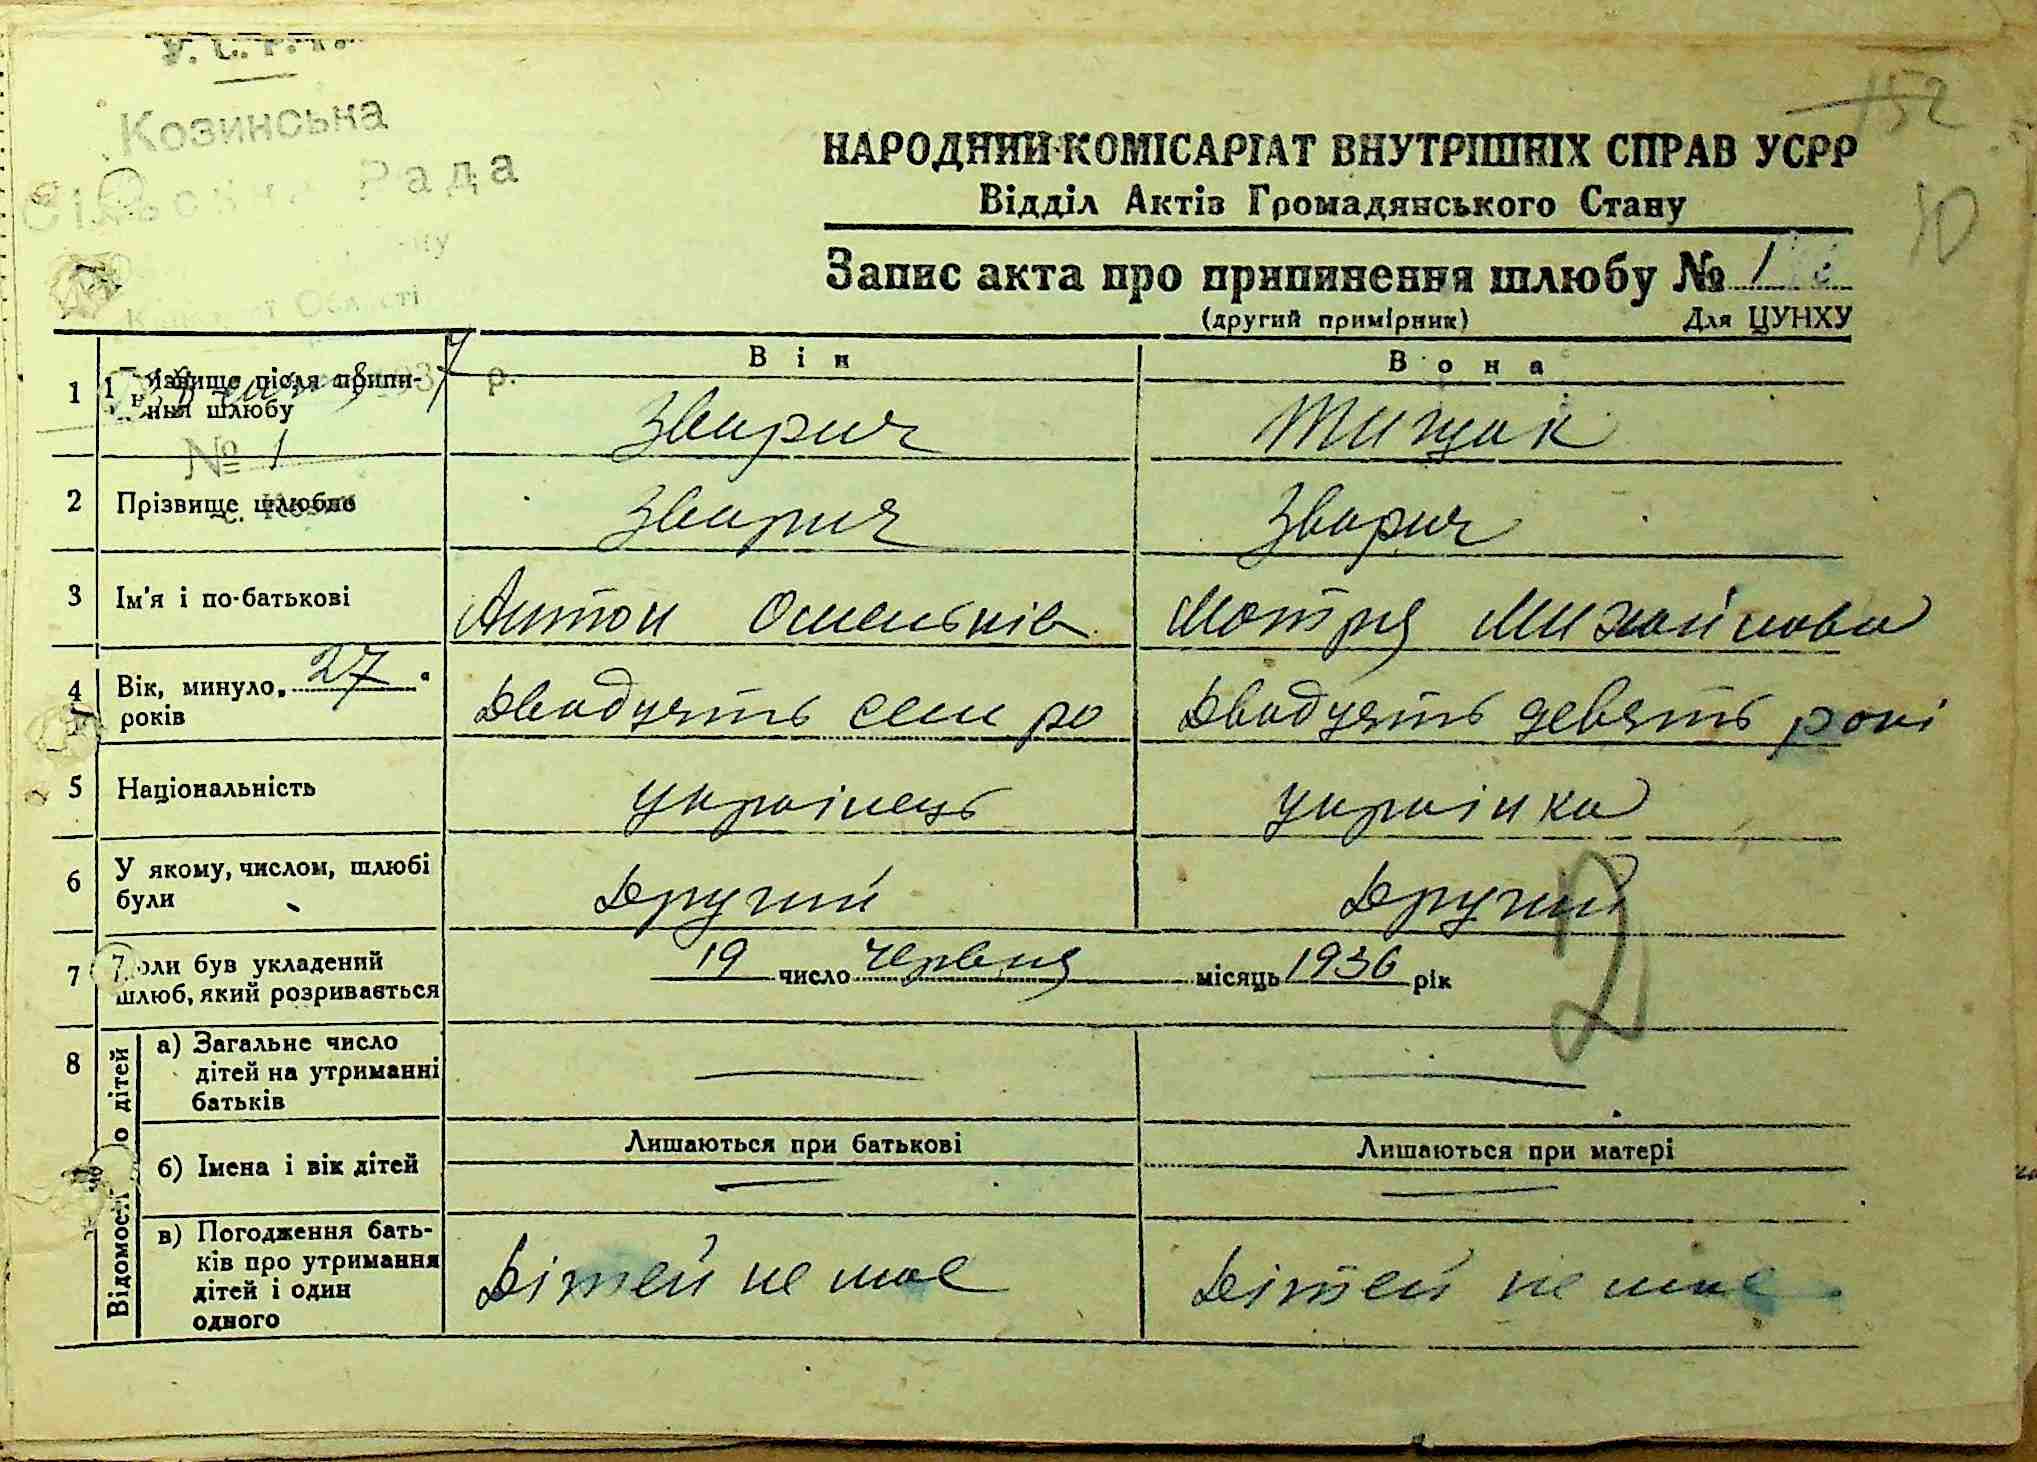 У. С. Р. Р.
Козинська
Сільська Рада
Області
7 р.
№ 1
152
10
НАРОДНИЙ КОМІСАРІАТ ВНУТРІШНІХ СПРАВ УСРР
Відділ Актів Громадянського Стану
Запис акта про припинення шлюбу № 1
(другий примірник) Для ЦУНХУ
Він Вона
1 Прізвище після припи-
нення шлюбу Зварич Тищак
2 Прізвище шлюбне Зварич Зварич
3 Ім'я і по-батькові Антон Омельків Мотря Михайлова
4 Вік, минуло 27
років Двадцять сем ро Двадцять девять рокі
5 Національність українець українка
6 У якому, числом, шлюбі
були Другий Другий
7 Коли був укладений
шлюб, який розривається 19 число червня місяць 1936 рік
2
8 Відомості про дітей
а) Загальне число
дітей на утриманні
батьків
Лишаються при батькові Лишаються при матері
б) Імена і вік дітей
в) Погодження бать-
ків про утримання
дітей і один
одного
Дітей не має Дітей не має